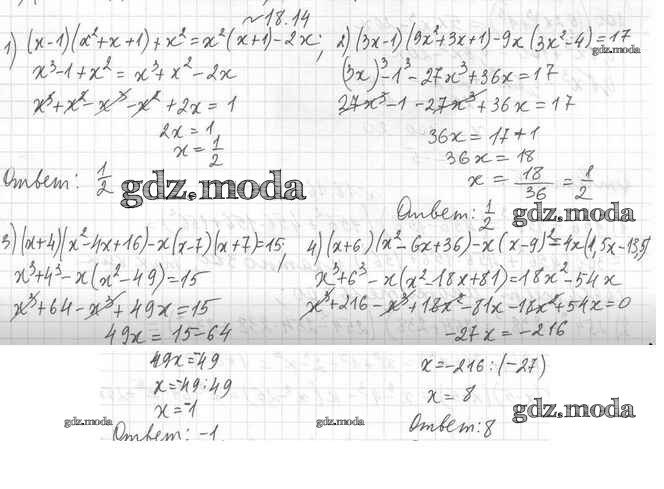 ~ 18.14
1) (x-1)(x²+x+1)+x²=x²(x+1)-2x;
x³-1+x²=x³+x²-2x
x³+x²-x³-x²+2x=1
2x=1
x=1/2
Ответ: 1/2
gdz.moda
2) (3x-1)(9x²+3x+1)-9x(3x²-4)=17
gdz.moda
(3x)³-1³-27x³+36x=17
27x³-1-27x³+36x=17
36x=17+1
36x=18
x=18/36=1/2
Ответ: 1/2
3) (x+4)(x²-4x+16)-x(x-7)(x+7)=15;
x³+4³-x(x²-49)=15
x³+64-x³+49x=15
49x=15-64
49x=-49
x=-49:49
x=-1
gdz.moda
Ответ: -1
4) (x+6)(x²-6x+36)-x(x-9)²=4x(4,5x-13,5)
x³+6³-x(x²-18x+81)=18x²-54x
x³+216-x³+18x²-81x-18x²+54x=0
-27x=-216
x=-216:(-27)
x=8
gdz.moda
gdz.moda
Ответ: 8